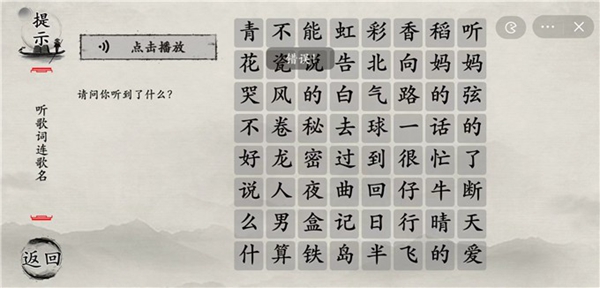 提示
点击播放
请问你听到了什么？
听歌词连歌名
返回
青不能虹彩香稻听
花瓷说告北向妈妈
错误
哭风的白气路的弦
不卷秘去球一话的
好龙密过到很忙了
说人夜曲回仔牛断
么男盒记日行晴天
什算铁岛半飞的爱